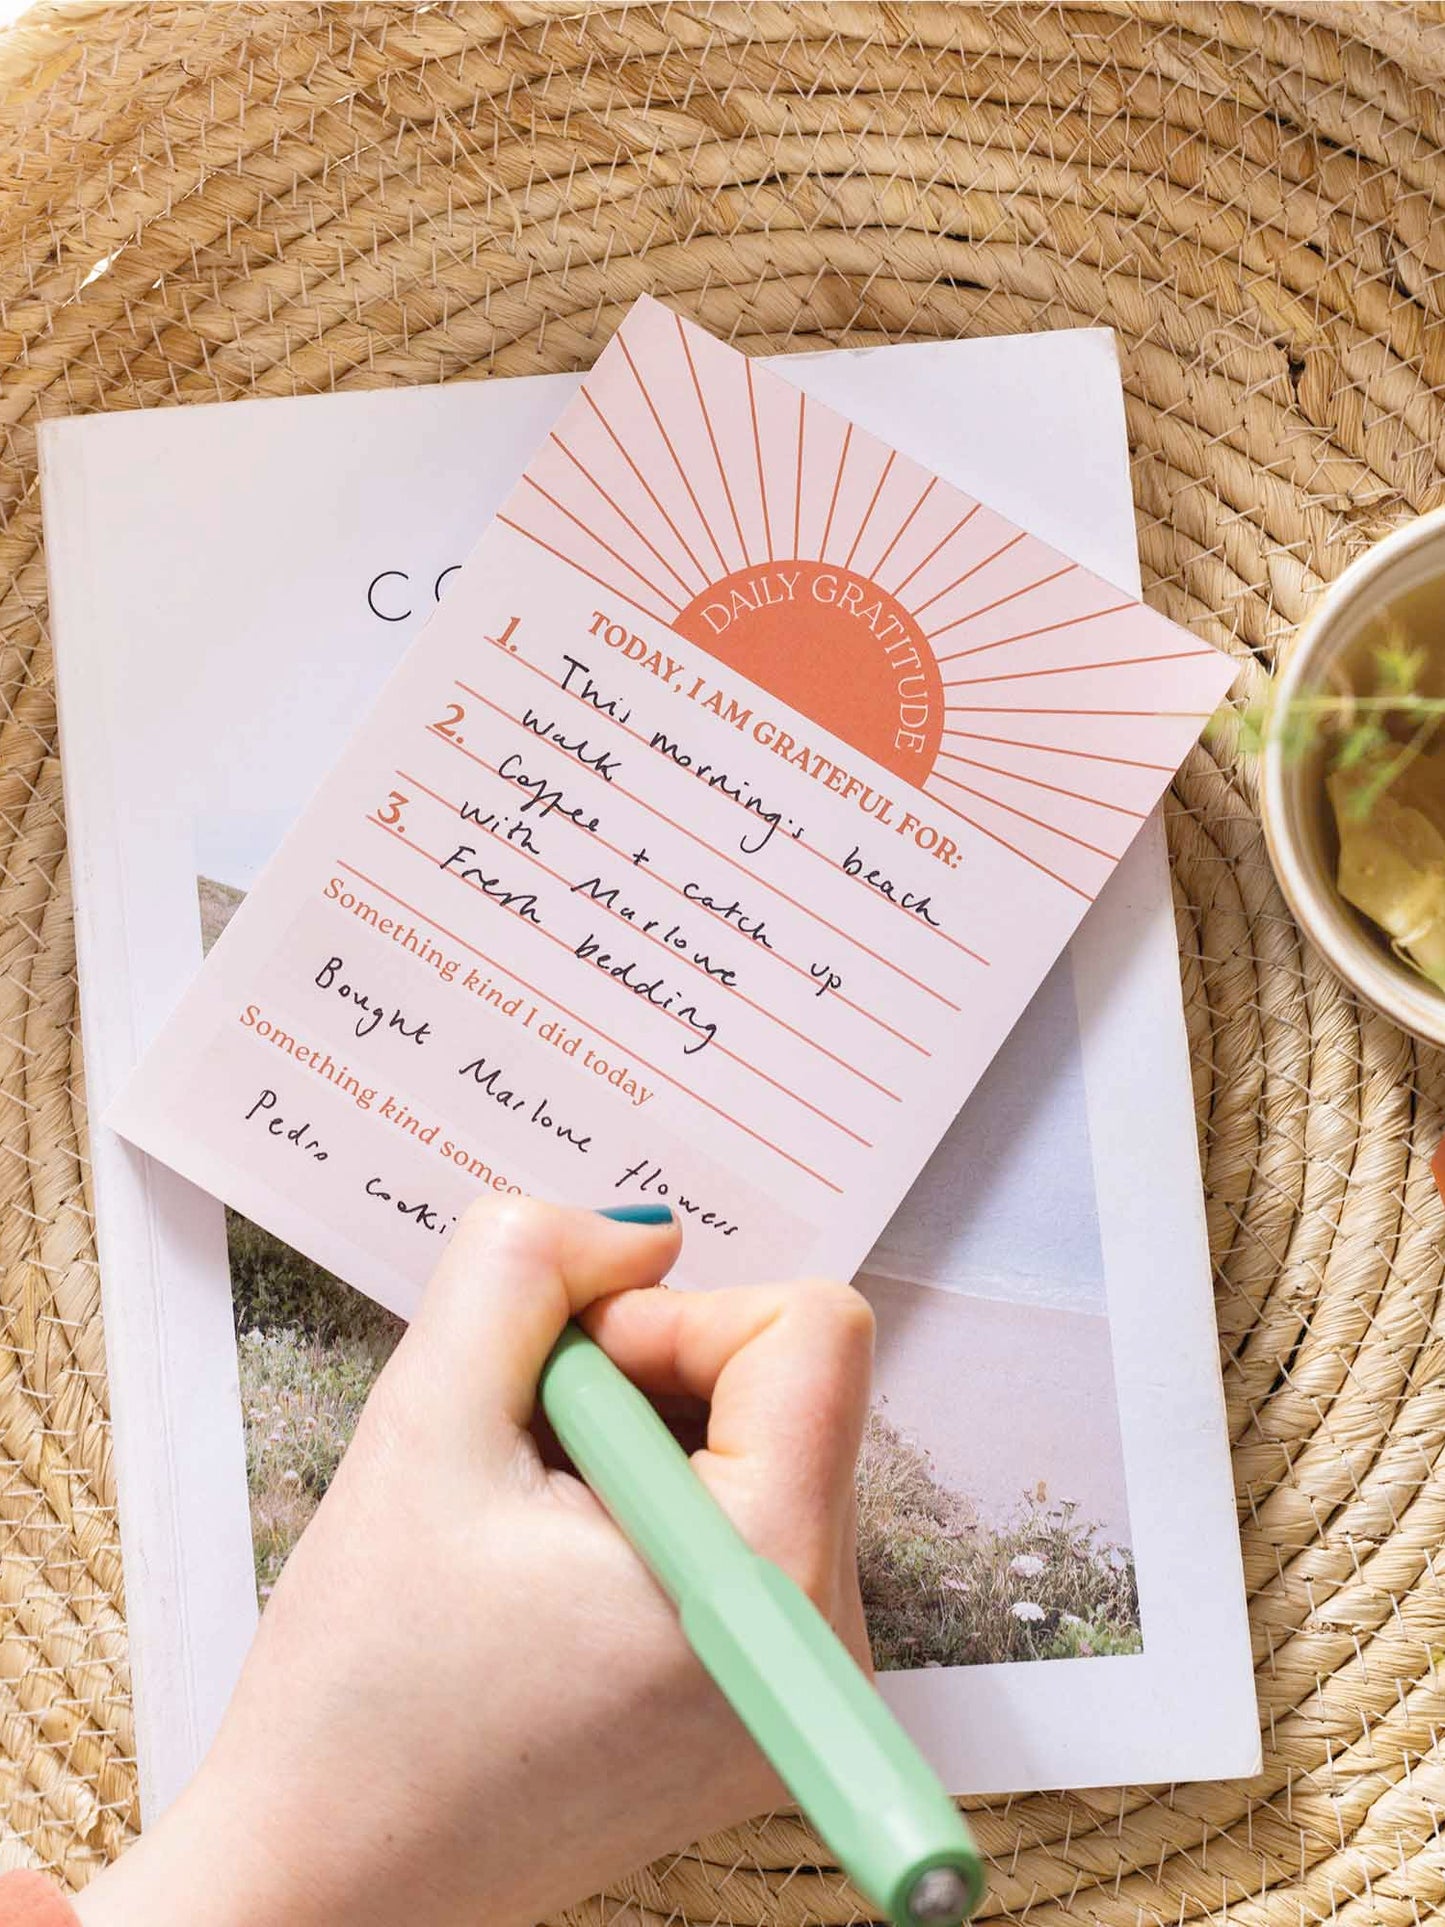 DAILY GRATITUDE
TODAY, I AM GRATEFUL FOR:
1. This morning's beach
walk
2. Coffee + catch up
with Marlowe
3. Fresh bedding
Something kind I did today
Bought Marlowe flowers
Something kind
Pedro